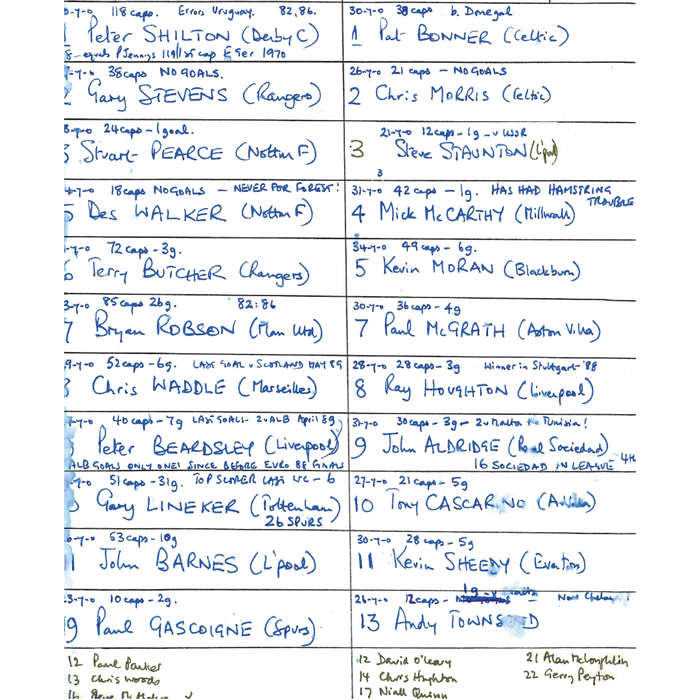 118 caps. Errors Uruguay. 82, 86.
1 Peter SHILTON (Derby C)
8 - equals P Jennings 119/1st cap E Ger 1970
38 caps NO GOALS.
2 Gary STEVENS (Rangers)
24 caps - 1 goal.
3 Stuart PEARCE (Nottm F)
18 caps NO GOALS - NEVER FOR FOREST!
5 Des WALKER (Nottm F)
72 caps - 3g.
6 Terry BUTCHER (Rangers)
85 caps 26g. 82:86
7 Bryan ROBSON (Man Utd)
52 caps - 6g. LAST GOAL v SCOTLAND MAY 89
8 Chris WADDLE (Marseilles)
40 caps - 7g LAST GOALS - 2 v ALB April 89
Peter BEARDSLEY (Liverpool)
ALB GOALS ONLY ONES SINCE BEFORE EURO 88 FINALS
51 caps - 31g. TOP SCORER LAST WC - 6
Gary LINEKER (Tottenham)
26 SPURS
53 caps - 10g
John BARNES (L'pool)
10 caps - 2g.
19 Paul GASCOIGNE (Spurs)
12 Paul Parker
13 Chris Woods
30-7-0 38 caps b. Donegal
1 Pat BONNER (Celtic)
26-7-0 21 caps - NO GOALS
2 Chris MORRIS (Celtic)
21-7-0 12 caps - 1g - v USSR
3 Steve STAUNTON (L'pool)
3
31-7-0 42 caps - 1g. HAS HAD HAMSTRING TROUBLE
4 Mick McCARTHY (Millwall)
34-7-0 49 caps - 6g.
5 Kevin MORAN (Blackburn)
30-7-0 36 caps - 4g
7 Paul McGRATH (Aston Villa)
28-7-0 28 caps - 3g Winner in Stuttgart - '88
8 Ray HOUGHTON (Liverpool)
31-7-0 30 caps - 3g - 2 v Malta Tunisia!
9 John ALDRIDGE (Real Sociedad)
16 SOCIEDAD IN LEAGUE - 4th
27-7-0 21 caps - 5g
10 Tony CASCARINO (A. Villa)
30-7-0 28 caps - 5g
11 Kevin SHEEDY (Everton)
26-7-0 12 caps - 1g - v
13 Andy TOWNSEND
12 David O'Leary
14 Chris Hughton
17 Niall Quinn
21 Alan McLoughlin
22 Gerry Peyton